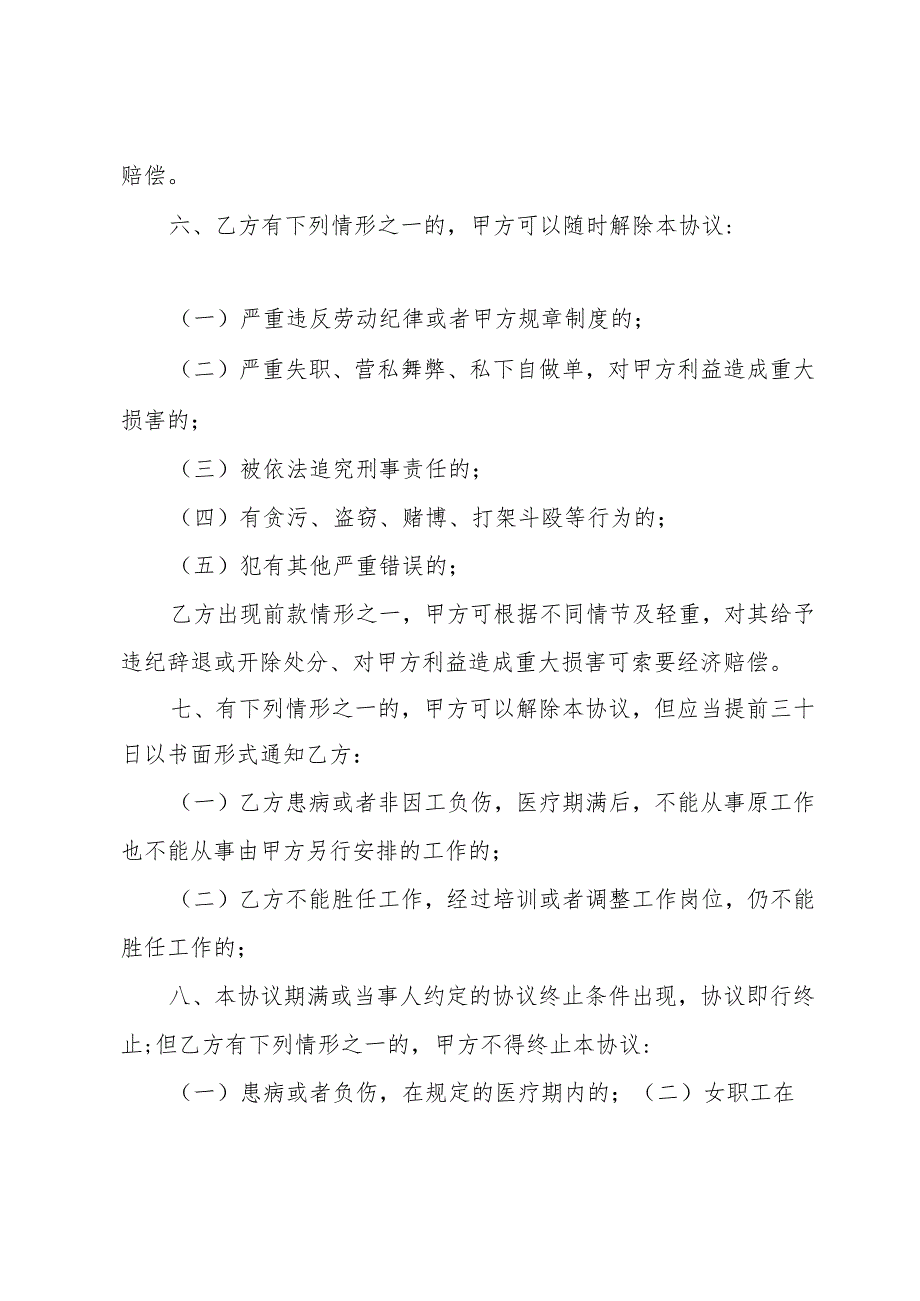 赔偿。
六、乙方有下列情形之一的，甲方可以随时解除本协议:
（一）严重违反劳动纪律或者甲方规章制度的；
（二）严重失职、营私舞弊、私下自做单，对甲方利益造成重大
损害的；
（三）被依法追究刑事责任的；
（四）有贪污、盗窃、赌博、打架斗殴等行为的；
（五）犯有其他严重错误的；
乙方出现前款情形之一，甲方可根据不同情节及轻重，对其给予
违纪辞退或开除处分、对甲方利益造成重大损害可索要经济赔偿。
七、有下列情形之一的，甲方可以解除本协议，但应当提前三十
日以书面形式通知乙方：
（一）乙方患病或者非因工负伤，医疗期满后，不能从事原工作
也不能从事由甲方另行安排的工作的；
（二）乙方不能胜任工作，经过培训或者调整工作岗位，仍不能
胜任工作的；
八、本协议期满或当事人约定的协议终止条件出现，协议即行终
止;但乙方有下列情形之一的，甲方不得终止本协议:
（一）患病或者负伤，在规定的医疗期内的；（二）女职工在